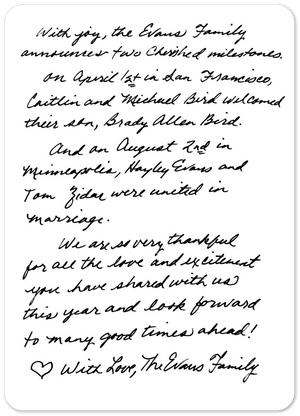 With joy, the Evans Family
announces two cherished milestones.
On April 1st in San Francisco,
Caitlin and Michael Bird welcomed
their son, Brady Allen Bird.
And on August 2nd in
Minneapolis, Hayley Evans and
Tom Zidar were united in
marriage.
We are so very thankful
for all the love and excitement
you have shared with us
this year and look forward
to many good times ahead!
♡ With Love, The Evans Family